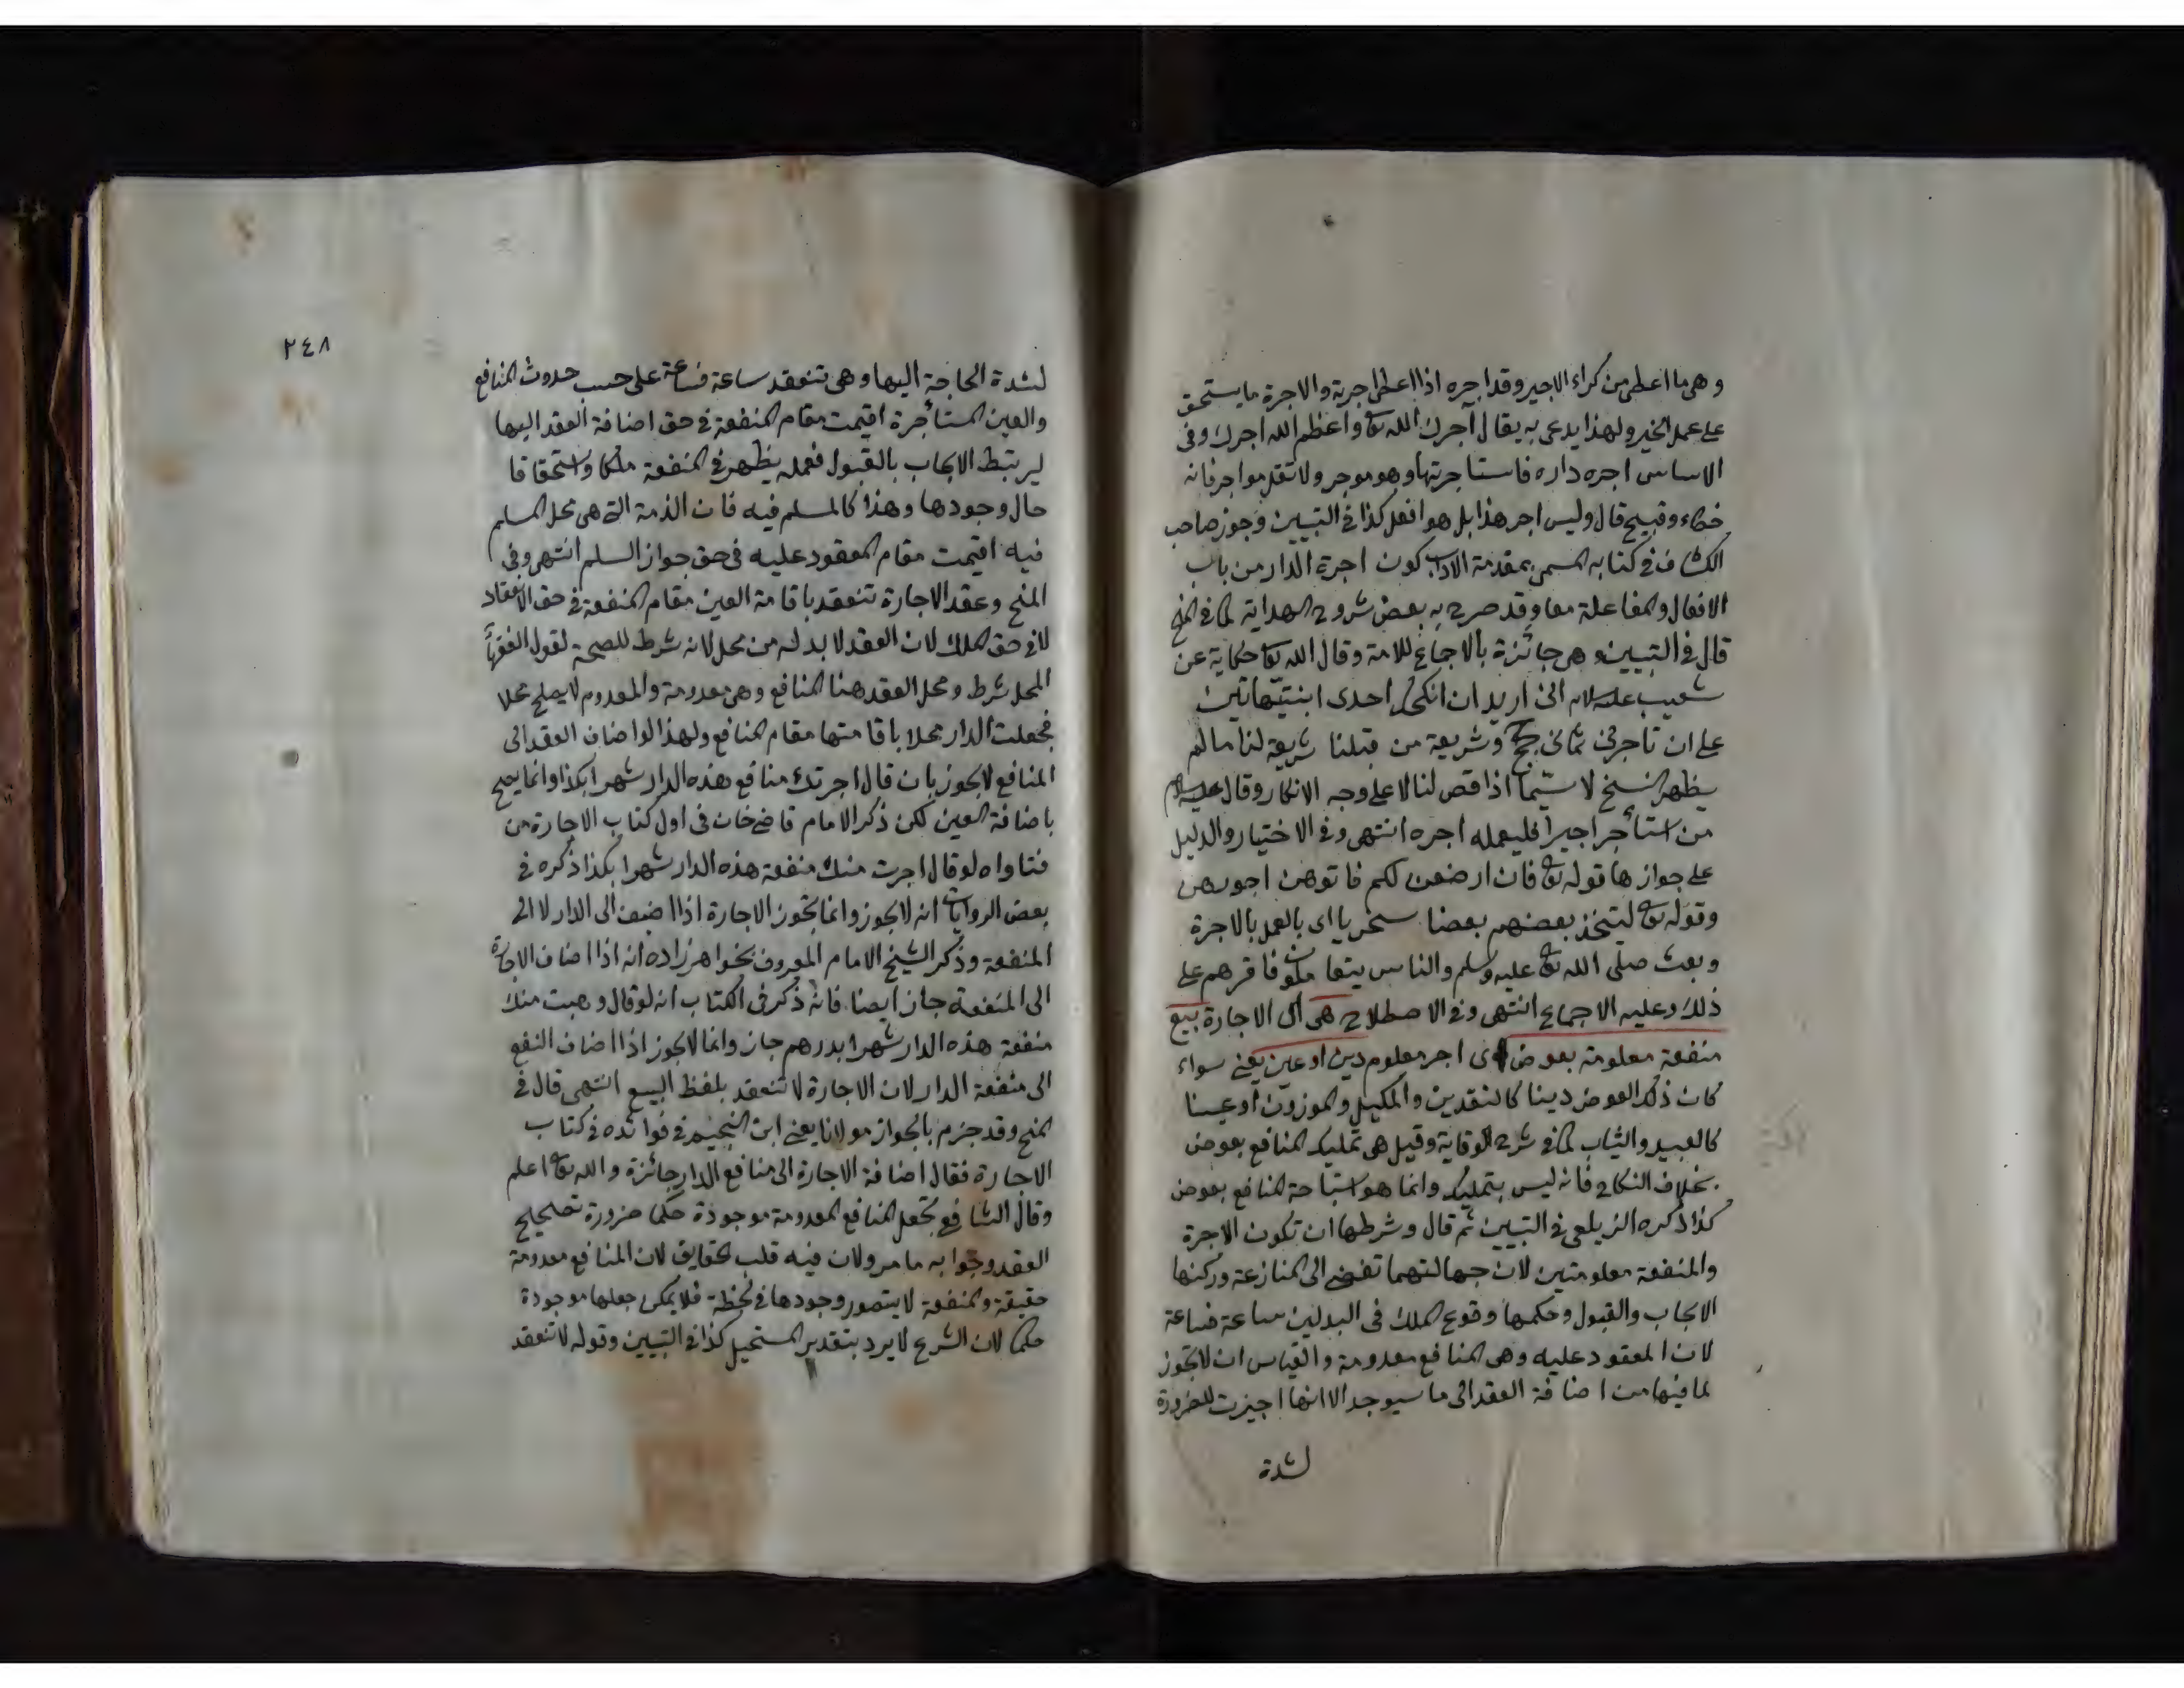 وهى ما اعطى من كراء الاجير وقد اجره اذا اعطى اجرته والاجرة ما يستحق
على عمل الخير ولهذا يدعى به يقال آجرك الله تع واعظم الله اجرك وفى
الاساس اجره داره فاستاجرتها وهو موجر ولا تقل مواجر فانه
خطاء وقبيح قال وليس اجر هذا بل هو افعل كذا فى التبيين وجوز صاحب
الكشاف فى كتابه المسمى بمقدمة الادب كون اجرة الدار من باب
الافعال والمفاعلة معا وقد صرح به بعض شروح الهداية كما فى المنح
قال فى التبيين وهى جائزة بالاجماع للامة وقال الله تع حكاية عن
شعيب عليه السلام انى اريد ان انكحك احدى ابنتى هاتين
على ان تاجرنى ثمانى حجج وشريعة من قبلنا شريعة لنا ما لم
يظهر النسخ لا سيما اذا قص لنا لا على وجه الانكار وقال عليه السلام
من استأجر اجيرا فليعلمه اجره انتهى وفى الاختيار والدليل
على جوازها قوله تع فان ارضعن لكم فاتوهن اجورهن
وقوله تع ليتخذ بعضهم بعضا سخريا اى بالعمل بالاجرة
وبعث صلى الله تع عليه وسلم والناس يتعاملون فاقرهم على
ذلك وعليه الاجماع انتهى وفى الاصطلاح هى اى الاجارة بيع
منفعة معلومة بعوض اى اجر معلوم دين او عين يعنى سواء
كان ذلك العوض دينا كالنقدين والمكيل والموزون او عينا
كالعبيد والثياب كما فى شرح الوقاية وقيل هى تمليك المنافع بعوض
بخلاف النكاح فانه ليس بتمليك وانما هو استباحة المنافع بعوض
كذا ذكره الزيلعى فى التبيين ثم قال وشرطها ان تكون الاجرة
والمنفعة معلومتين لان جهالتهما تفضى الى المنازعة وركنها
الايجاب والقبول وحكمها وقوع الملك فى البدلين ساعة فساعة
لان المعقود عليه وهى المنافع معدومة والقياس ان لا تجوز
لما فيها من اضافة العقد الى ما سيوجد الا انها اجيزت للضرورة
لشدة
٢٤٨
لشدة الحاجة اليها وهى تنعقد ساعة فساعة على حسب حدوث المنافع
والعين المستأجرة اقيمت مقام المنفعة فى حق اضافة العقد اليها
ليرتبط الايجاب بالقبول فعمله يظهر فى المنفعة ملكا واستحقاقا
حال وجودها وهذا كالمسلم فيه فان الذمة التى هى محل المسلم
فيه اقيمت مقام المعقود عليه فى حق جواز السلم انتهى وفى
المنح وعقد الاجارة تنعقد باقامة العين مقام المنفعة فى حق الانعقاد
لا فى حق الملك لان العقد لا بد له من محل لانه شرط للصحة لقول الفقهأ
المحل شرط ومحل العقد هنا المنافع وهى معدومة والمعدوم لا يصلح محلا
فجعلت الدار محلا باقامتها مقام المنافع ولهذا لو اضاف العقد الى
المنافع لا يجوز بان قال اجرتك منافع هذه الدار شهرا بكذا وانما يصح
باضافة العين لكن ذكر الامام قاضى خان فى اول كتاب الاجارة من
فتاواه لو قال اجرت منك منفعة هذه الدار شهرا بكذا ذكره فى
بعض الروايات انه لا يجوز وانما تجوز الاجارة اذا اضيف الى الدار لا الى
المنفعة وذكر الشيخ الامام المعروف بخواهر زاده انه اذا اضاف الاجارة
الى المنفعة جاز ايضا فانه ذكر فى الكتاب انه لو قال وهبت منك
منفعة هذه الدار شهرا بدرهم جاز وانما لا يجوز اذا اضاف النفع
الى منفعة الدار لان الاجارة لا تنعقد بلفظ البيع انتهى قال فى
المنح وقد جزم بالجواز مولانا يعنى ابن النجيم فى فوائده فى كتاب
الاجارة فقال اضافة الاجارة الى منافع الدار جائزة والله تع اعلم
وقال الشافعى تجعل المنافع المعدومة موجودة حكما ضرورة تصحيح
العقد وجوابه ما مر ولان فيه قلب الحقايق لان المنافع معدومة
حقيقة والمنفعة لا يتصور وجودها فى لحظة فلا يمكن جعلها موجودة
حكما لان الشرع لا يرد بتقدير المستحيل كذا فى التبيين وقوله لا تنعقد